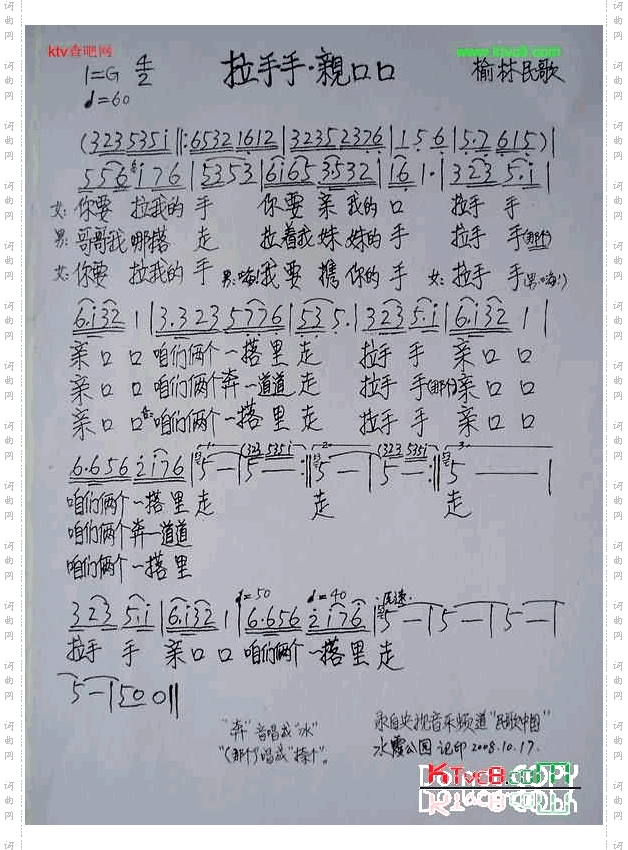 ktv查吧网
www.ktvc8.com
1=G 4/2
♩=60
拉手手·親口口
榆林民歌
(323 535i ||: 65321612 | 32352376 | 1 5 6 | 5·7 615) |
556 i76 | 5353 | 6i653532 | i6 1· | 323 5·i |
女: 你要 拉我的 手 你要 亲我的 口 拉手 手
男: 哥哥我 哪搭 走 拉着我 妹妹的 手 拉手 手(那个)
女: 你要 拉我的 手 男:(嗨)我要 携你的 手 女: 拉手 手(男:嗨!)
6·i32 1 | 3·323 5776 | 53 5· | 323 5·i | 6·i32 1 |
亲口口 咱们俩个 一搭里走 拉手手 亲口口
亲口口 咱们俩个奔 一道道走 拉手手(那个)亲口口
亲口口 咱们俩个 一搭里走 拉手手 亲口口
6·656 2i76 | 5 — | 5 — :|| 5 — | 5 — :|| 5 — — |
咱们俩个 一搭里走 走 走
咱们俩个奔一道道
咱们俩个 一搭里
♩=50 ♩=40
323 5·i | 6·i32 1 | 6·656 2i76 | 5 — | 5 — | 5 — |
拉手 手 亲口口 咱们俩个 一搭里走
5 — | 5 0 0 ||
"奔"音唱成"水"
"(那个)"唱成"捺个"。
录自央视音乐频道"民歌中国"
水霞公园 记印 2008.10.17.
KTvc8.com
DON'T COPY
词曲网